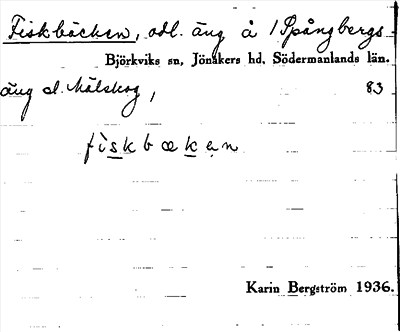 Fiskbäcken, odl. äng å 1 Spångbergs
Björkviks sn, Jönåkers hd, Södermanlands län.
äng el. Målskog, 83
fiskbœken
Karin Bergström 1936.